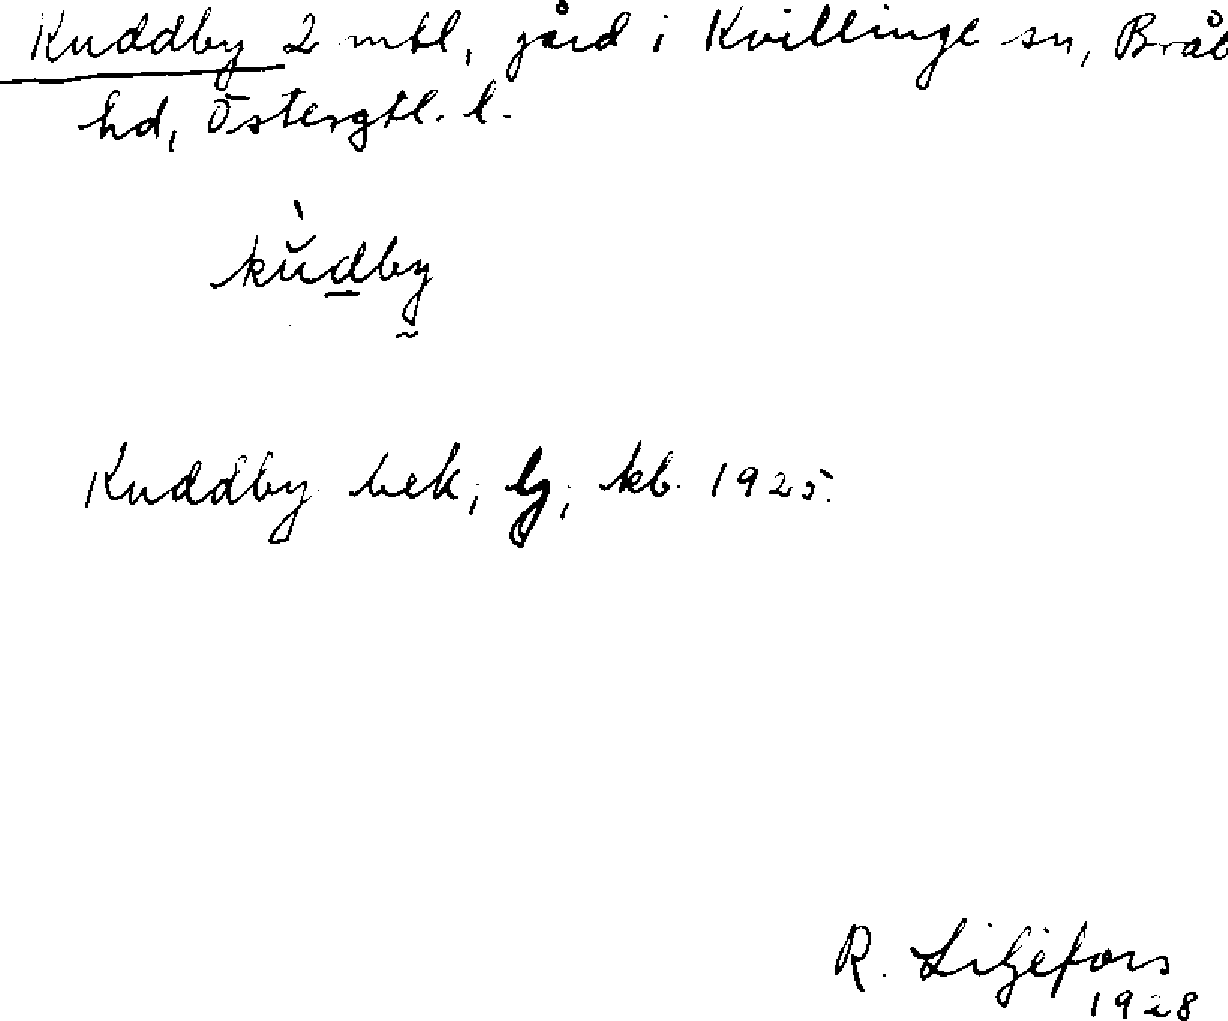 Kuddby 2 mtl, gård i Kvillinge sn, Bråb
hd, Östergtl. l.
kŭ̀dby
Kuddby bek, lj, kb. 1925.
R. Liljefors
1928